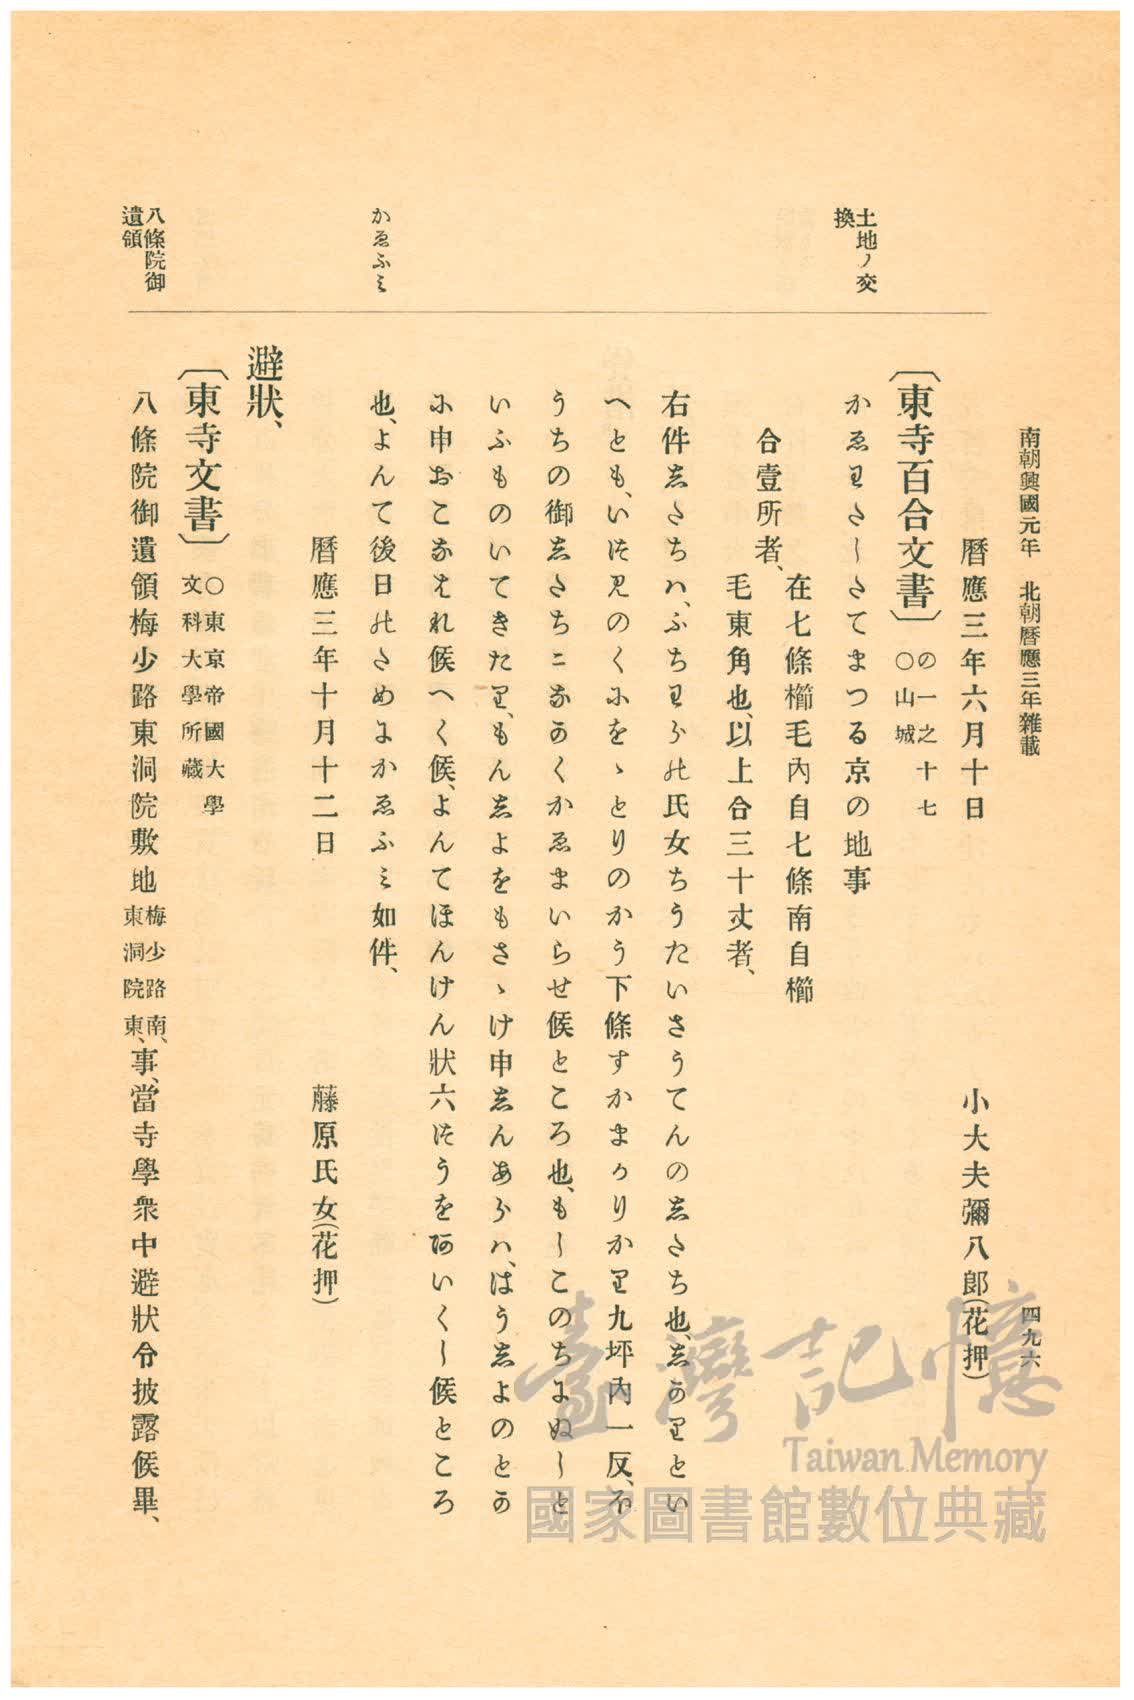 南朝興國元年　北朝曆應三年雜載
四九六
土地ノ交
換
かゑふミ
八條院御
遺領
曆應三年六月十日　小大夫彌八郎(花押)
〔東寺百合文書〕　の一之十七
○山城
かゑわさしさてまつる京の地事
合壹所者、
在七條櫛毛內自七條南自櫛
毛東角也、以上合三十丈者、
右件志さちハ、ふちわらの氏女ちうたいさうてんの志さち也、志かりとい
へとも、いつみのくにをゝとりのかう下條すかまかりかり九坪內一反、ホ
うちの御志さちニなかくかゑまいらせ候ところ也、もしこのちにぬしと
いふものいてきたり、もん志よをもさゝけ申志んあらハ、はう志よのとか
に申おこなはれ候へく候、よんてほんけん狀六つうをあいくし候ところ
也、よんて後日のさめにかゑふミ如件、
曆應三年十月十二日　藤原氏女(花押)
避狀、
〔東寺文書〕　○東京帝國大學
文科大學所藏
八條院御遺領梅少路東洞院敷地
梅少路南、
東洞院東、
事、當寺學衆中避狀令披露候畢、
臺灣記憶
Taiwan Memory
國家圖書館數位典藏